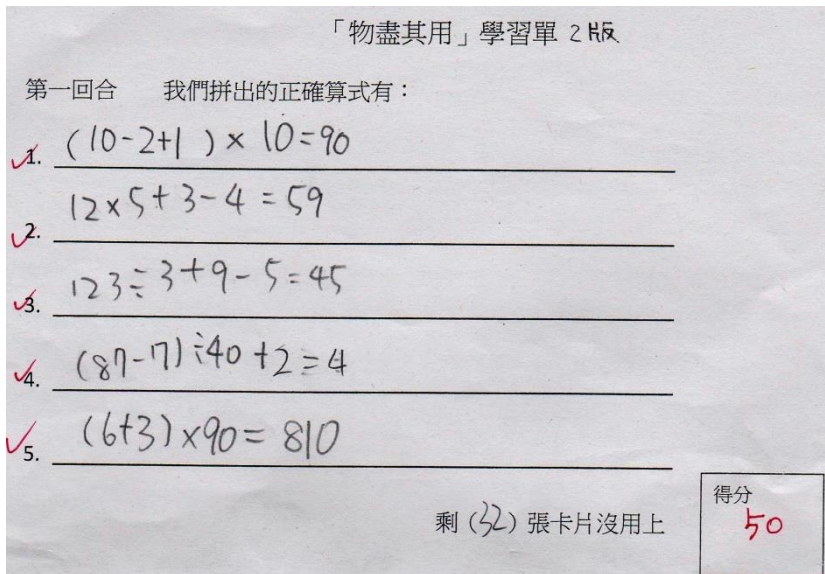 「物盡其用」學習單 2版
第一回合 我們拼出的正確算式有：
1. (10-2+1)×10=90
2. 12×5+3-4=59
3. 123÷3+9-5=45
4. (87-7)÷40+2=4
5. (6+3)×90=810
剩（32）張卡片沒用上
得分
50